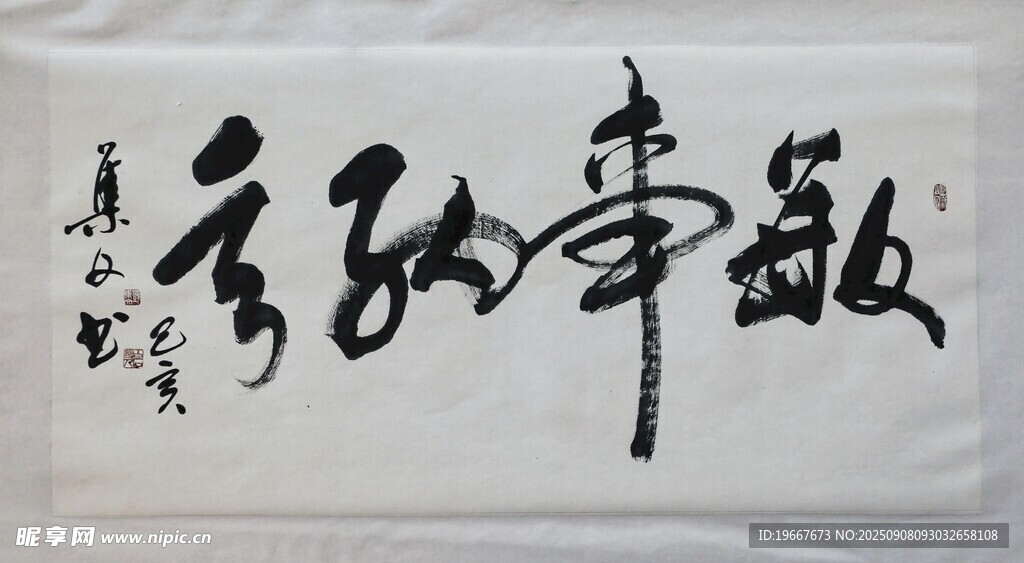 敏事讷言
己亥
集文书
昵享网 www.nipic.cn
ID:19667673 NO:20250908093032658108